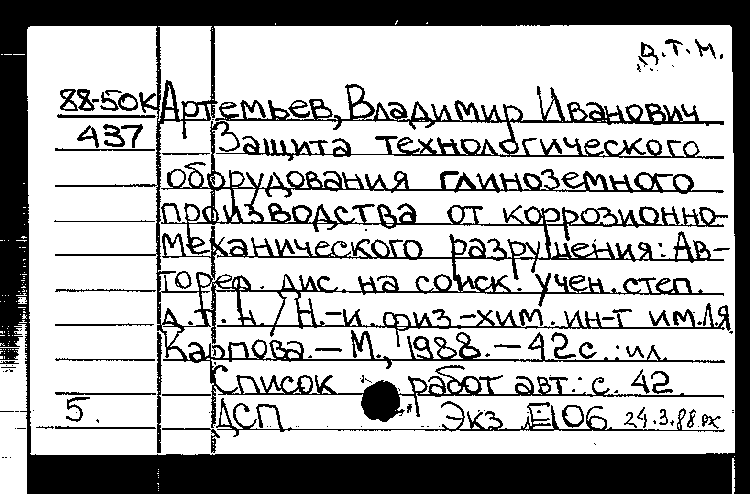 Д.Т.Н.
88-50К Артемьев, Владимир Иванович
437 Защита технологического
оборудования глиноземного
производства от коррозионно-
механического разрушения: Ав-
тореф. дис. на соиск. учен. степ.
д.т.н. / Н.-и. физ.-хим. ин-т им. Л.Я.
Карпова. — М., 1988. — 42 с.: ил.
Список работ авт.: с. 42.
5. ДСП Экз 06 24.3.88